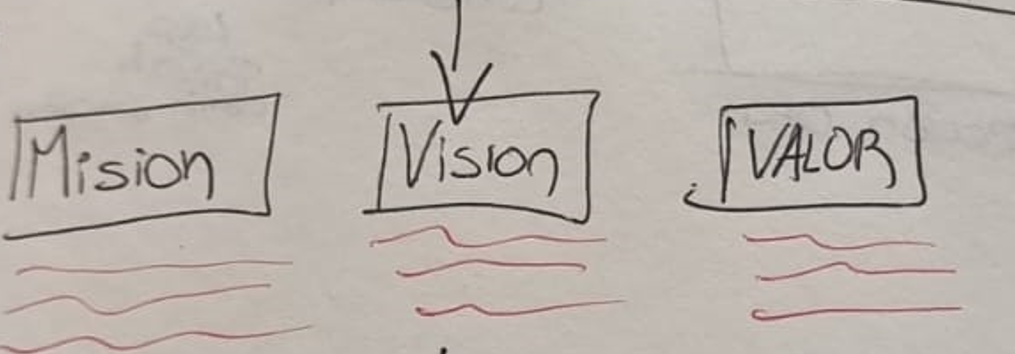 Mision
Vision
VALOR